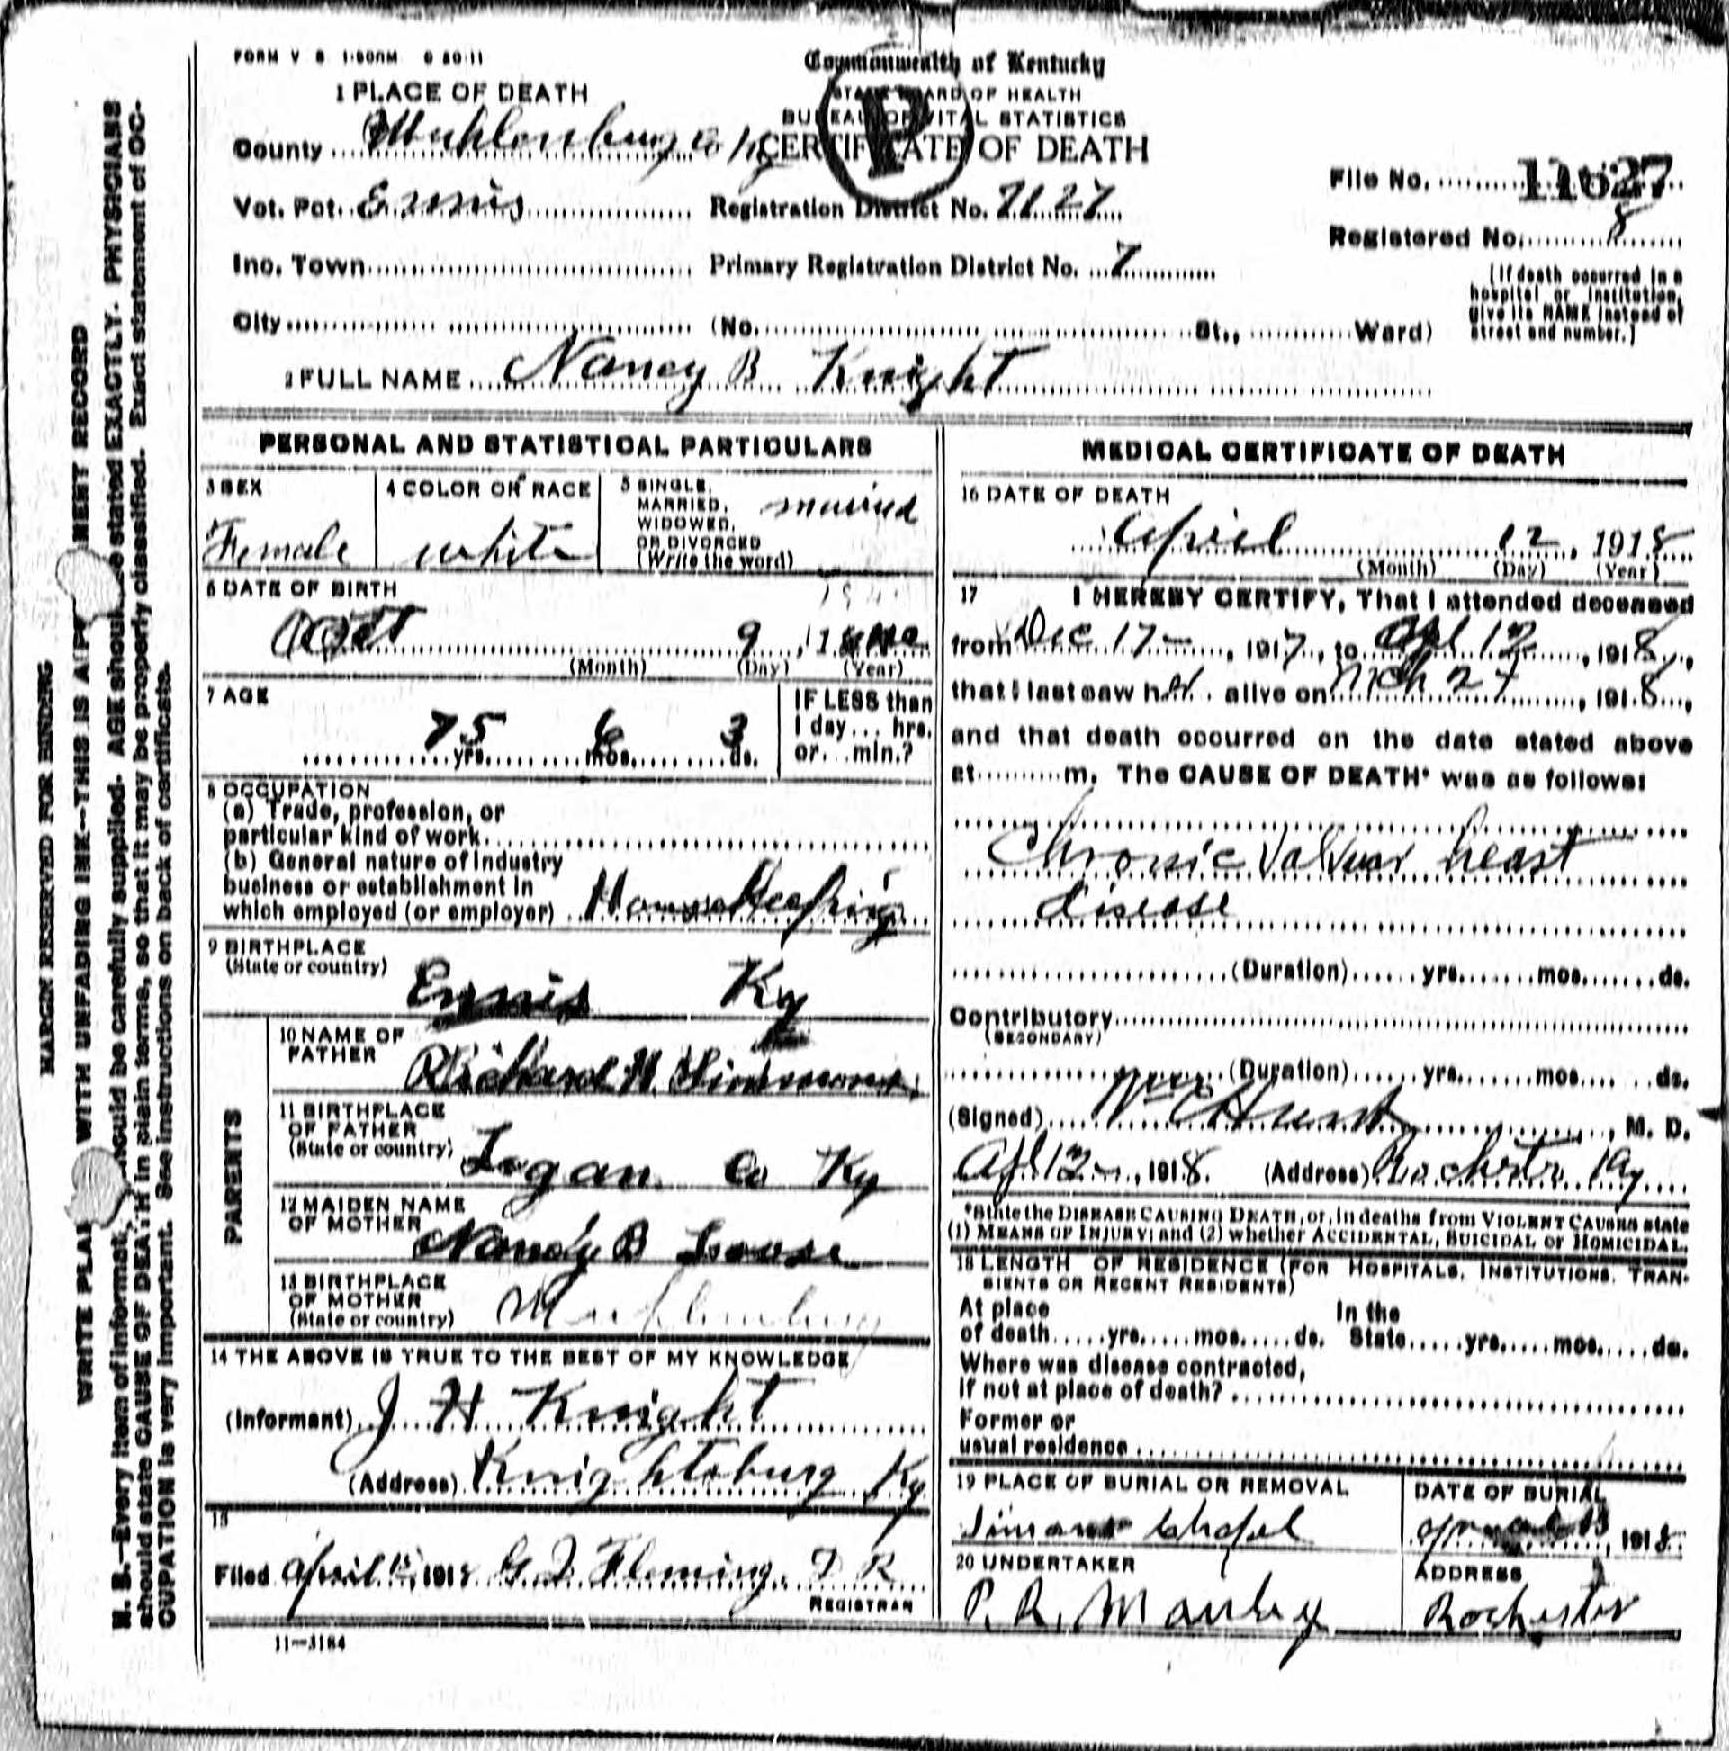 FORM V S 1-500M 6 20-11
Commonwealth of Kentucky
STATE BOARD OF HEALTH
BUREAU OF VITAL STATISTICS
CERTIFICATE OF DEATH
P
1 PLACE OF DEATH
County Muhlenburg Co Ky
Vot. Pct. Ennis
Registration District No. 7127
File No. 11627
Inc. Town
Primary Registration District No. 7
Registered No. 8
City (No. St., Ward)
(If death occurred in a hospital or institution, give its NAME instead of street and number.)
2 FULL NAME Nancy B Knight
PERSONAL AND STATISTICAL PARTICULARS
3 SEX
Female
4 COLOR OR RACE
white
5 SINGLE, MARRIED, WIDOWED, OR DIVORCED (Write the word)
married
6 DATE OF BIRTH
Oct 9, 1
(Month) (Day) (Year)
7 AGE
75 yrs. 6 mos. 3 ds.
IF LESS than 1 day... hrs. or... min.?
8 OCCUPATION
(a) Trade, profession, or
particular kind of work
(b) General nature of industry
business or establishment in
which employed (or employer) House Keeping
9 BIRTHPLACE
(State or country)
Ennis Ky
PARENTS
10 NAME OF FATHER
Richard H Simmons
11 BIRTHPLACE OF FATHER
(State or country) Logan Co Ky
12 MAIDEN NAME OF MOTHER
Nancy B
13 BIRTHPLACE OF MOTHER
(State or country) Muhlenburg
14 THE ABOVE IS TRUE TO THE BEST OF MY KNOWLEDGE
(Informant) J H Knight
(Address) Knightsburg Ky
15
Filed April 1918 G Fleming
REGISTRAR
11—3184
MEDICAL CERTIFICATE OF DEATH
16 DATE OF DEATH
April 12, 1918
(Month) (Day) (Year)
17 I HEREBY CERTIFY, That I attended deceased
from Dec 17, 1917, to Apl 12, 1918,
that I last saw her alive on Mch 27, 1918,
and that death occurred on the date stated above
at m. The CAUSE OF DEATH* was as follows:
Chronic Valvuar heart
disease
(Duration) yrs. mos. ds.
Contributory
(SECONDARY)
(Duration) yrs. mos. ds.
(Signed) Hunt, M. D.
Apl 12, 1918. (Address) Rochester Ky
*State the DISEASE CAUSING DEATH, or, in deaths from VIOLENT CAUSES state
(1) MEANS OF INJURY; and (2) whether ACCIDENTAL, SUICIDAL or HOMICIDAL.
18 LENGTH OF RESIDENCE (FOR HOSPITALS, INSTITUTIONS, TRAN-
SIENTS OR RECENT RESIDENTS)
At place In the
of death yrs. mos. ds. State yrs. mos. ds.
Where was disease contracted,
if not at place of death?
Former or
usual residence
19 PLACE OF BURIAL OR REMOVAL
Chapel
DATE OF BURIAL
1918
20 UNDERTAKER
P. R. Manley
ADDRESS
Rochester
MARGIN RESERVED FOR BINDING
WITH UNFADING INK—THIS IS A RECORD
N. B.—Every item of should be carefully supplied. AGE should stated EXACTLY. PHYSICIANS
should state CAUSE OF DEATH in plain terms, so that it may be properly classified. Exact statement of OC-
CUPATION is very important. See instructions on back of certificate.